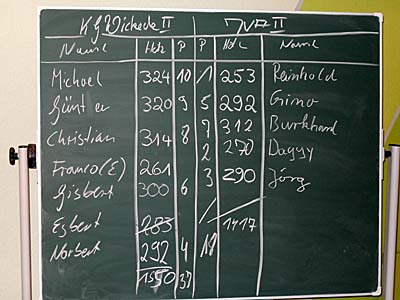 KG Wickede II JVA II
Name Holz P P Holz Name
Michael 324 10 1 253 Reinhold
Günter 320 9 5 292 Gino
Christian 314 8 7 312 Burkhard
Franco(E) 261 2 270 Daggy
Gisbert 300 6 3 290 Jörg
Egbert 283 / 1417
Norbert 292 4 18
1550 37